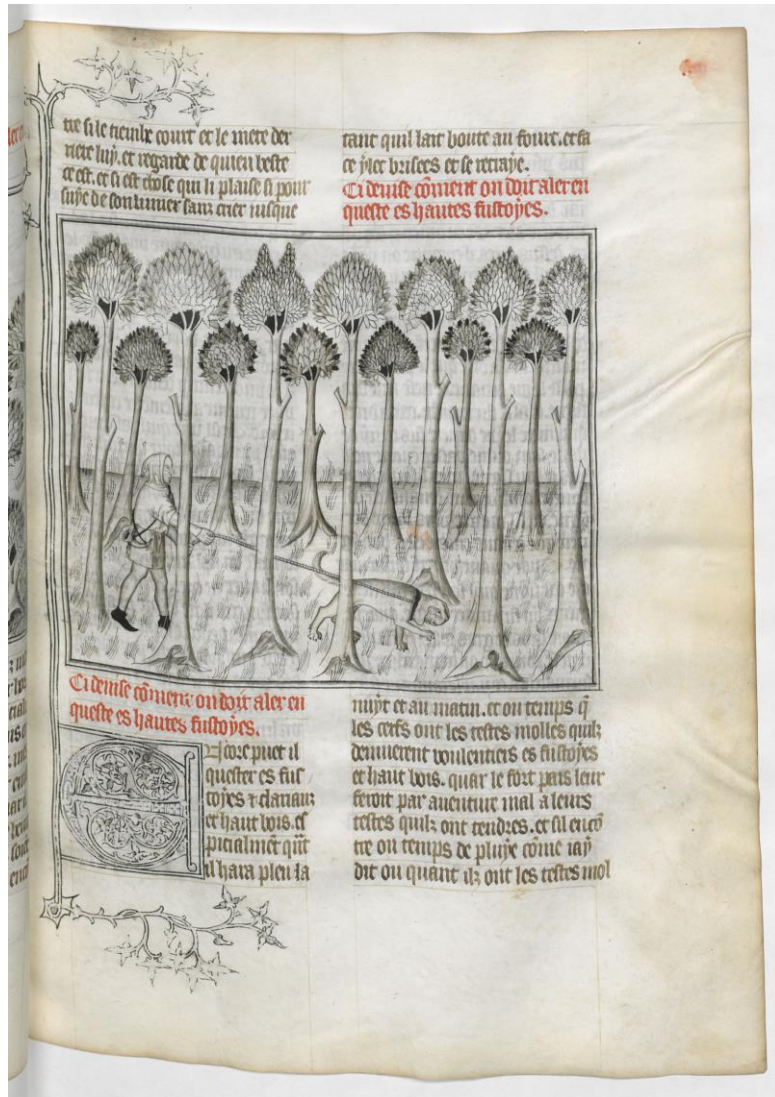 tre si le tieinbe court et le mete der
riere luy. et regarde de quien beste
ce est. et si est chose qui li plaise si pour
suye de son limier sanz crier iusque
tant quil lait boute au fourt. et fa
ce ylec brisees et se retraye.
Ci deuise cōment on doit aler en
queste es hautes fustoyes.
Ci deuise cōment on doit aler en
queste es hautes fustoyes.
Encore puet il
quester es fus
toyes ⁊ clariaus
et haut bois. es
picialmēt qūt
il hara pleu la
nuyt et au matin. et ou temps q̄
les cerfs ont les testes molles quilz
demuerent voulentiers es fustoyes
et haut bois. quar le fort pais leur
feroit par auenture mal a leurs
testes quilz ont tendres. et sil encō
tre ou temps de pluye cōme iay
dit ou quant ilz ont les testes mol